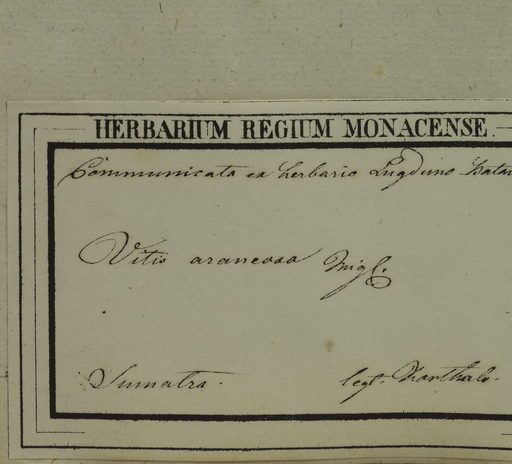 HERBARIUM REGIUM MONACENSE.
Communicata ex herbario Lugduno-Batav
Vitis araneosa Miql.
Sumatra. legt. Korthals.